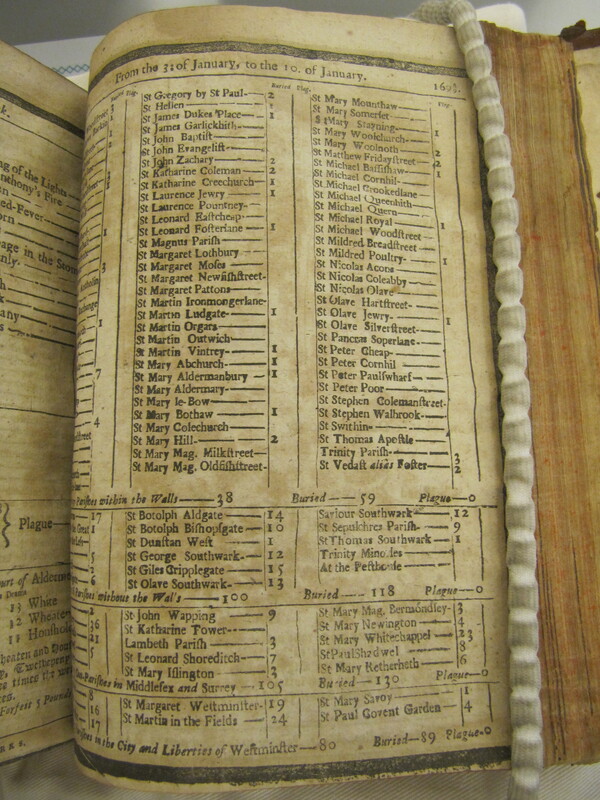 From the 3. of January, to the 10. of January.
Buried Plag.
St Gregory by St Paul— 2
St Hellen 1
St James Dukes Place— 1
St James Garlickhith—
St John Baptist
St John Evangelist—
St John Zachary 2
St Katharine Coleman 2
St Katharine Creechurch 1
St Laurence Jewry 1
St Laurence Pountney
St Leonard Eastcheap
St Leonard Fosterlane 1
St Magnus Parish
St Margaret Lothbury
St Margaret Moses
St Margaret Newfishstreet
St Margaret Pattons
St Martin Ironmongerlane
St Martin Ludgate 1
St Martin Orgars
St Martin Outwich
St Martin Vintrey 1
St Mary Abchurch 1
St Mary Aldermanbury 1
St Mary Aldermary
St Mary le-Bow
St Mary Bothaw 1
St Mary Colechurch
St Mary Hill 2
St Mary Mag. Milkstreet
St Mary Mag. Oldfishstreet
Plag.
St Mary Mounthaw
St Mary Somerset
St Mary Stayning
St Mary Woolchurch 1
St Mary Woolnoth
St Matthew Fridaystreet 2
St Michael Bassishaw 2
St Michael Cornhil 1
St Michael Crookedlane
St Michael Queenhith
St Michael Quern
St Michael Royal 1
St Michael Woodstreet
St Mildred Breadstreet
St Mildred Poultry 1
St Nicolas Acons
St Nicolas Coleabby
St Nicolas Olave
St Olave Hartstreet
St Olave Jewry
St Olave Silverstreet 1
St Pancras Soperlane
St Peter Cheap
St Peter Cornhil
St Peter Paulswharf
St Peter Poor
St Stephen Colemanstreet
St Stephen Walbrook
St Swithin
St Thomas Apostle
Trinity Parish 3
St Vedast alias Foster 2
Parishes within the Walls—38 Buried—59 Plague—0
St Botolph Aldgate 14
St Botolph Bishopsgate 10
St Dunstan West 1
St George Southwark 12
St Giles Cripplegate 15
St Olave Southwark 13
Saviour Southwark 12
St Sepulchres Parish 9
St Thomas Southwark 1
Trinity Minories
At the Pesthouse
Parishes without the Walls—100 Buried—118 Plague—0
St John Wapping 9
St Katharine Tower
Lambeth Parish 3
St Leonard Shoreditch 7
St Mary Islington 3
St Mary Mag. Bermondsey 3
St Mary Newington 4
St Mary Whitechappel 23
St Paul Shadwel 8
St Mary Retherheth 6
Parishes in Middlesex and Surrey—105 Buried—130 Plague—0
St Margaret Westminster 19
St Martin in the Fields 24
St Mary Savoy 1
St Paul Covent Garden 4
Parishes in the City and Liberties of Westminster—80 Buried—89 Plague—0
Plague
White
Wheaten